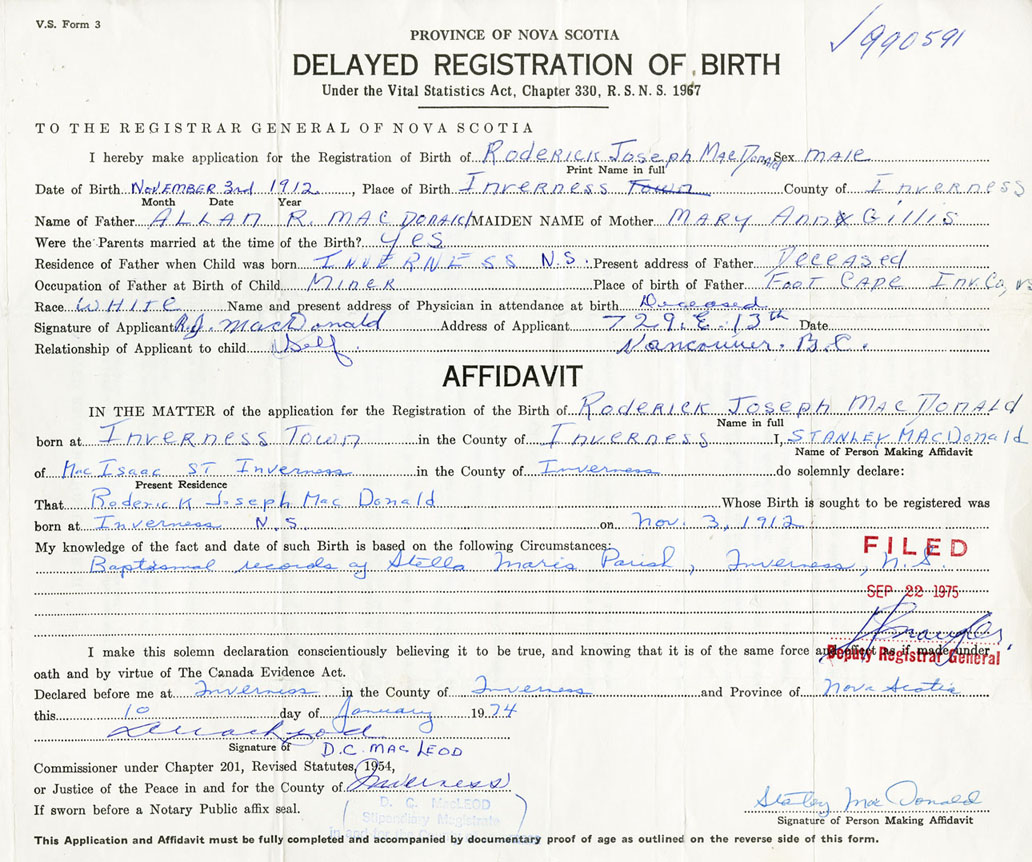 V.S. Form 3
✓990591
PROVINCE OF NOVA SCOTIA
DELAYED REGISTRATION OF BIRTH
Under the Vital Statistics Act, Chapter 330, R.S.N.S. 1967
TO THE REGISTRAR GENERAL OF NOVA SCOTIA
I hereby make application for the Registration of Birth of Roderick Joseph MacDonald Sex male
Print Name in full
Date of Birth November 3rd 1912, Place of Birth Inverness Town County of Inverness
Month Date Year
Name of Father ALLAN R. MACDONALD MAIDEN NAME of Mother MARY ANN Gillis
Were the Parents married at the time of the Birth? yes
Residence of Father when Child was born INVERNESS N.S. Present address of Father Deceased
Occupation of Father at Birth of Child MINER Place of birth of Father Foot Cape Inv. Co,
Race WHITE Name and present address of Physician in attendance at birth Deceased
Signature of Applicant R.J. MacDonald Address of Applicant 729. E. 13th Date
Relationship of Applicant to child Self. Vancouver. B.C.
AFFIDAVIT
IN THE MATTER of the application for the Registration of the Birth of Roderick Joseph MacDonald
Name in full
born at Inverness Town in the County of Inverness I, STANLEY MACDonald
Name of Person Making Affidavit
of MacIsaac ST Inverness in the County of Inverness do solemnly declare:
Present Residence
That Roderick Joseph MacDonald Whose Birth is sought to be registered was
born at Inverness N.S. on Nov. 3, 1912
My knowledge of the fact and date of such Birth is based on the following Circumstances:
FILED
Baptismal records of Stella Maris Parish, Inverness, N.S.
SEP 22 1975
I make this solemn declaration conscientiously believing it to be true, and knowing that it is of the same force and effect as if made under
Deputy Registrar General
oath and by virtue of The Canada Evidence Act.
Declared before me at Inverness in the County of Inverness and Province of Nova Scotia
this 10 day of January 1974
Signature of D.C. MACLEOD
Commissioner under Chapter 201, Revised Statutes, 1954,
or Justice of the Peace in and for the County of Inverness
D. C. MacLEOD
If sworn before a Notary Public affix seal.
Stipendiary Magistrate
in and for the County
Stanley MacDonald
Signature of Person Making Affidavit
This Application and Affidavit must be fully completed and accompanied by documentary proof of age as outlined on the reverse side of this form.